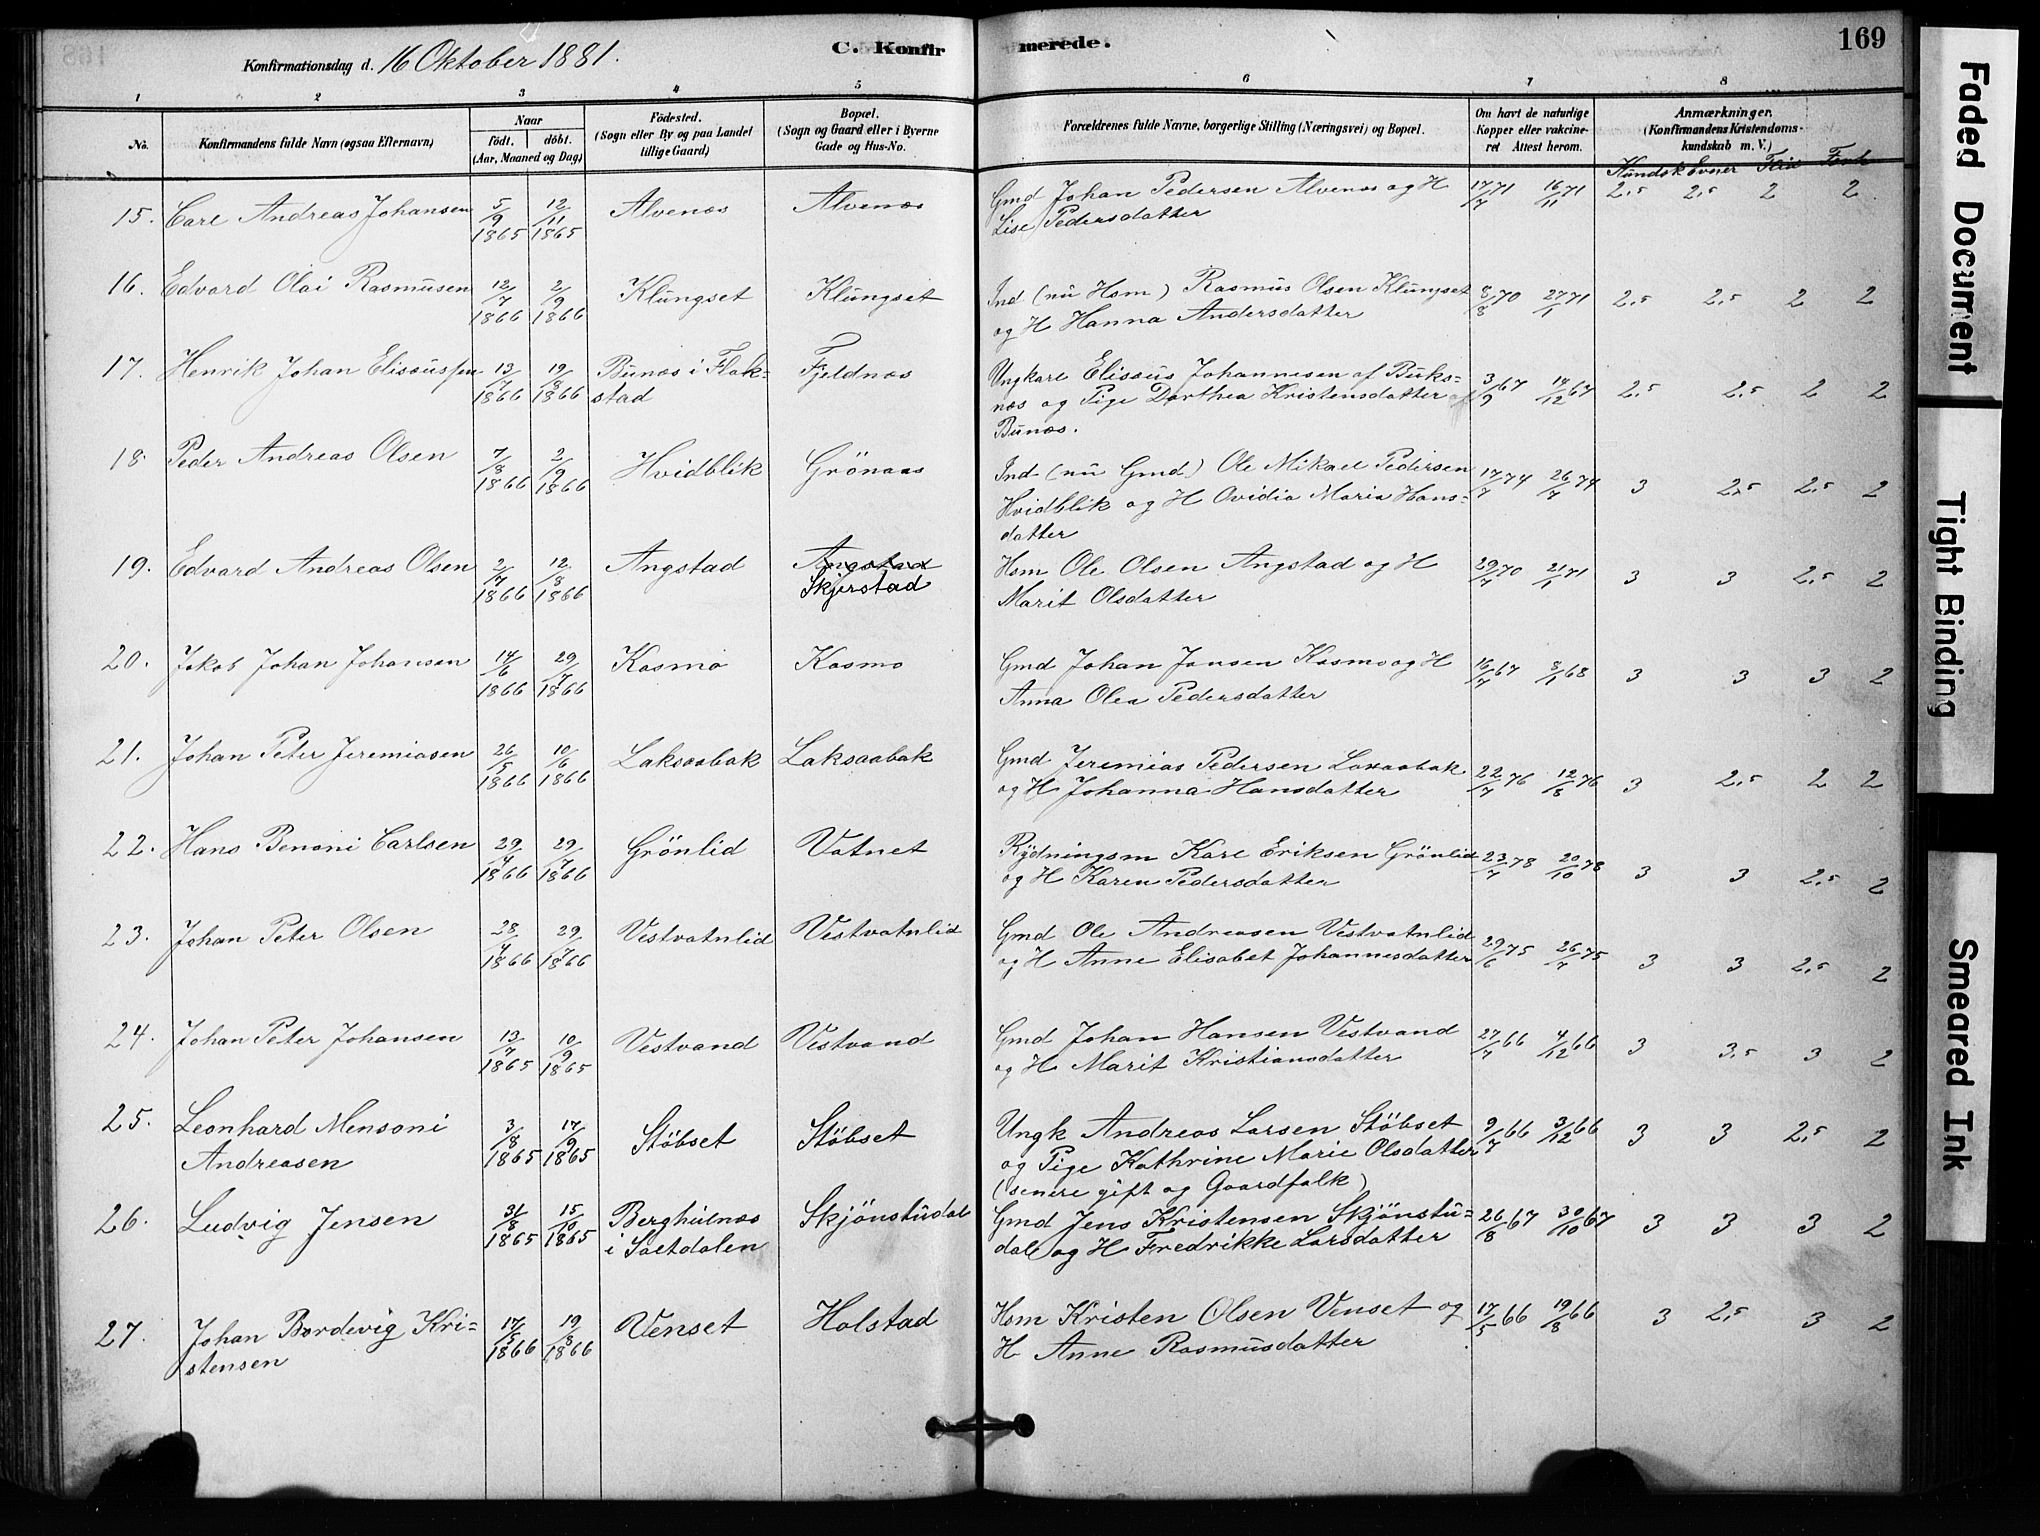 169
C. Konfirmerede.
Konfirmationsdag d. 16 Oktober 1881.
1 2 3 4 5 6 7 8
No. Konfirmandens fulde Navn (ogsaa Efternavn) Naar födt. döbt. (Aar, Maaned og Dag) Födested. (Sogn eller By og paa Landet tillige Gaard) Bopæl. (Sogn og Gaard eller i Byerne Gade og Hus-No. Forældrenes fulde Navne, borgerlige Stilling (Næringsvei) og Bopæl. Om havt de naturlige Kopper eller vakcineret Attest herom. Anmærkninger. (Konfirmandens Kristendomskundskab m. V.)
Kundsk Evner Flid Forh
15. Carl Andreas Johansen 5/9 1865 12/11 1865 Alvenes Alvenes Gmd Johan Pedersen Alvenes og H 17/7 71 16/11 71 2,5 2,5 2 2
Lise Pedersdatter
16. Edvard Olai Rasmusen 12/7 1866 2/9 1866 Klungset Klungset Ind (nu Hsm) Rasmus Olsen Klungset 8/8 70 27/1 71 2,5 2,5 2 2
og H Hanna Andersdatter
17. Henrik Johan Elisæussen 13/7 1866 19/8 1866 Bunæs i Flak= Fjeldnæs Ungkare Elisæus Johannesen af Buks= 3/9 67 14/12 67 2,5 2,5 2 2
stad næs og Pige Dorthea Kristensdatter af
Bunæs.
18. Peder Andreas Olsen 7/8 1866 2/9 1866 Hvidblik Grönaas Ind (nu Gmd) Ole Mikael Pedersen 17/7 74 26/7 74 3 2,5 2,5 2
Hvidblik og H Ovidia Maria Hans=
datter
19. Edvard Andreas Olsen 2/7 1866 12/8 1866 Angstad Angstad Hsm Ole Olsen Angstad og H 29/7 70 21/1 71 3 3 2,5 2
Skjerstad Marit Olsdatter
20. Jakob Johan Johansen 14/6 1866 29/7 1866 Kosmo Kosmo Gmd Johan Jonsen Kosmo og H 16/7 67 8/1 68 3 3 3 2
Anna Olea Pedersdatter
21. Johan Peter Jeremiasen 26/5 1866 10/6 1866 Laksaabak Laksaabak Gmd Jeremias Pedersen Laxaabak 22/7 76 12/8 76 3 2,5 2 2
og H Johanna Hansdatter
22. Hans Benoni Carlsen 29/4 1866 29/7 1866 Grönlid Vatnet Rydningsm Karl Eriksen Grönlid 23/7 78 20/10 78 3 3 2,5 2
og H Karen Pedersdatter
23. Johan Peter Olsen 28/4 1866 29/7 1866 Vestvatnlid Vestvatnlid Gmd Ole Andreasen Vestvatnlid 29/6 75 26/7 75 3 3 2,5 2
og H Anne Elisabet Johannesdatter
24. Johan Peter Johansen 13/7 1865 10/9 1865 Vestvand Vestvand Gmd Johan Hansen Vestvand 27/7 66 4/12 66 3 3,5 3 2
og H Marit Kristiansdatter
25. Leonhard Mensoni 3/8 1865 17/9 1865 Stöbset Stöbset Ungk Andreas Larsen Stöbset 9/7 66 3/12 66 3 3 2,5 2
Andreasen og Pige Kathrine Marie Olsdatter
(senere gift og Gaardfolk)
26. Ludvig Jensen 31/8 1865 15/10 1865 Berghulnes Skjönstudal Gmd Jens Kristensen Skjönstu= 26/8 67 30/10 67 3 3 3 2
i Saltdalen dal og H Fredrikke Larsdatter
27. Johan Bordevig Kri= 17/5 1866 19/8 1866 Venset Holstad Hsm Kristen Olsen Venset og 17/5 66 19/8 66 3 2,5 3 2
stensen H Anne Rasmusdatter
Faded Document
Tight Binding
Smeared Ink